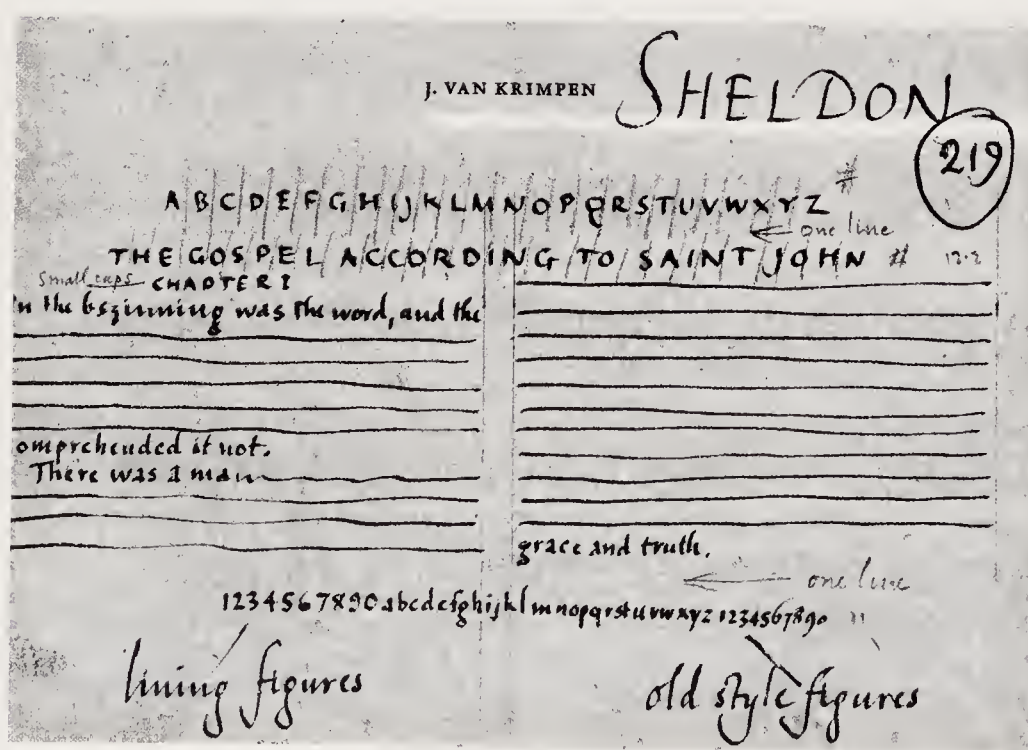 J. VAN KRIMPEN
SHELDON
219
A B C D E F G H I J K L M N O P Q R S T U V W X Y Z #
one line
THE GOSPEL ACCORDING TO SAINT JOHN #
small caps CHAPTER I
n the beginning was the word, and the
omprehended it not.
There was a man
grace and truth.
one line
1234567890abcdefghijklmnopqrstuvwxyz 1234567890
lining figures
old style figures